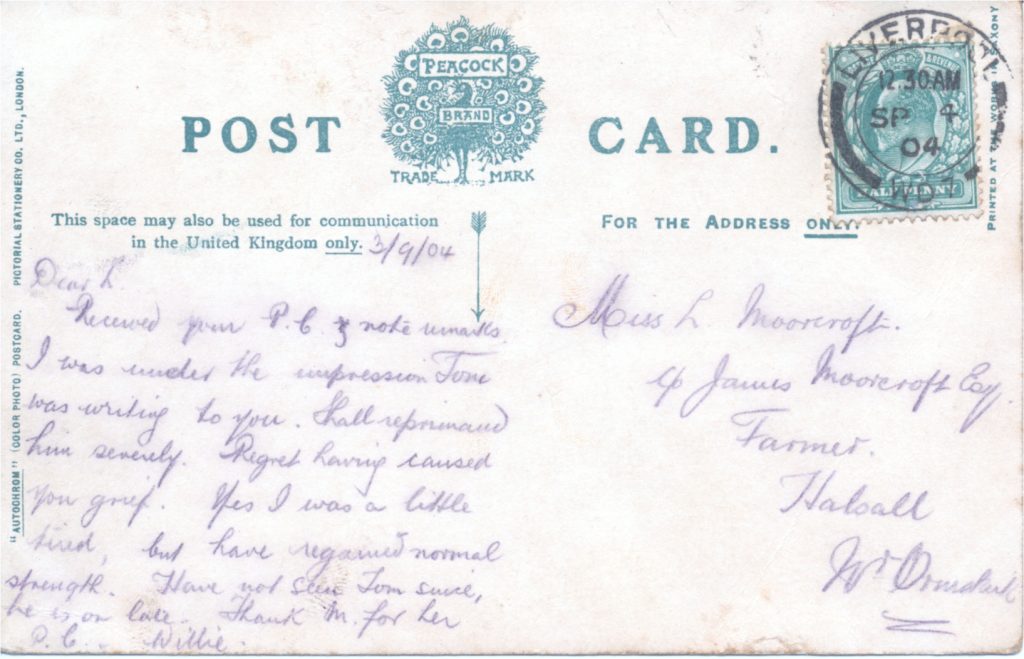 POST CARD.
PEACOCK
BRAND
TRADE MARK
This space may also be used for communication
in the United Kingdom only.
3/9/04
FOR THE ADDRESS ONLY.
LIVERPOOL
12.30 AM
SP 4
04
HALFPENNY
Dear L.
Received your P.C. & note remarks.
I was under the impression Tom
was writing to you. Shall reprimand
him severely. Regret having caused
you grief. Yes I was a little
tired, but have regained normal
strength. Have not seen Tom since,
he is on late. Thank M. for her
P.C. Willie.
Miss L. Moorcroft.
c/o James Moorcroft Esq.
Farmer.
Halsall
Nr Ormskirk
"AUTOCHROM" (COLOR PHOTO) POSTCARD. PICTORIAL STATIONERY CO. LTD., LONDON.
PRINTED AT THE WORKS IN SAXONY